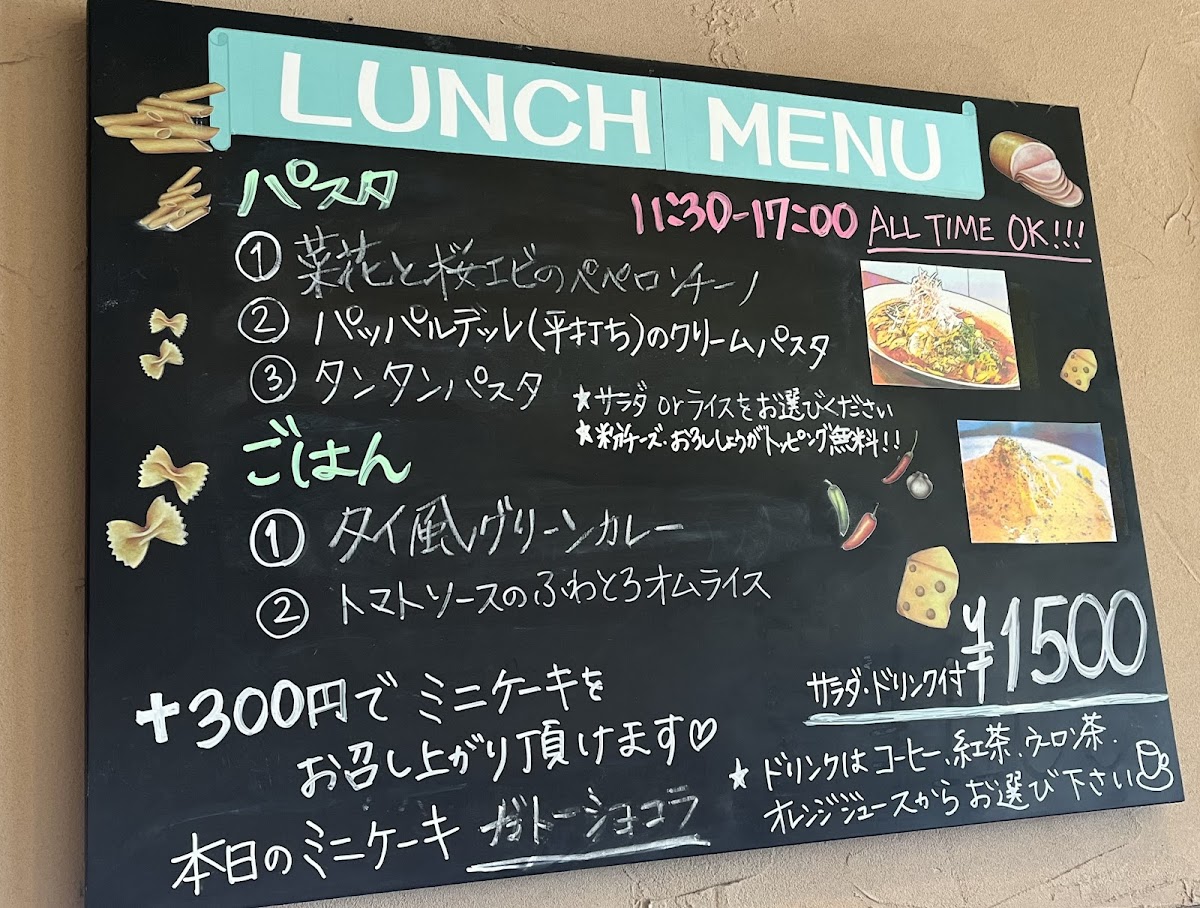 LUNCH MENU
パスタ
11:30-17:00 ALL TIME OK!!!
①菜花と桜エビのペペロンチーノ
② パッパルデッレ(平打ち)のクリームパスタ
③ タンタンパスタ
★サラダorライスをお選びください
★粉チーズ・おろししょうがトッピング無料!!
ごはん
① タイ風グリーンカレー
② トマトソースのふわとろオムライス
¥1500
サラダ・ドリンク付
+300円でミニケーキを
お召し上がり頂けます♡
本日のミニケーキ ガトーショコラ
★ドリンクはコーヒー、紅茶、ウーロン茶、
オレンジジュースからお選び下さい